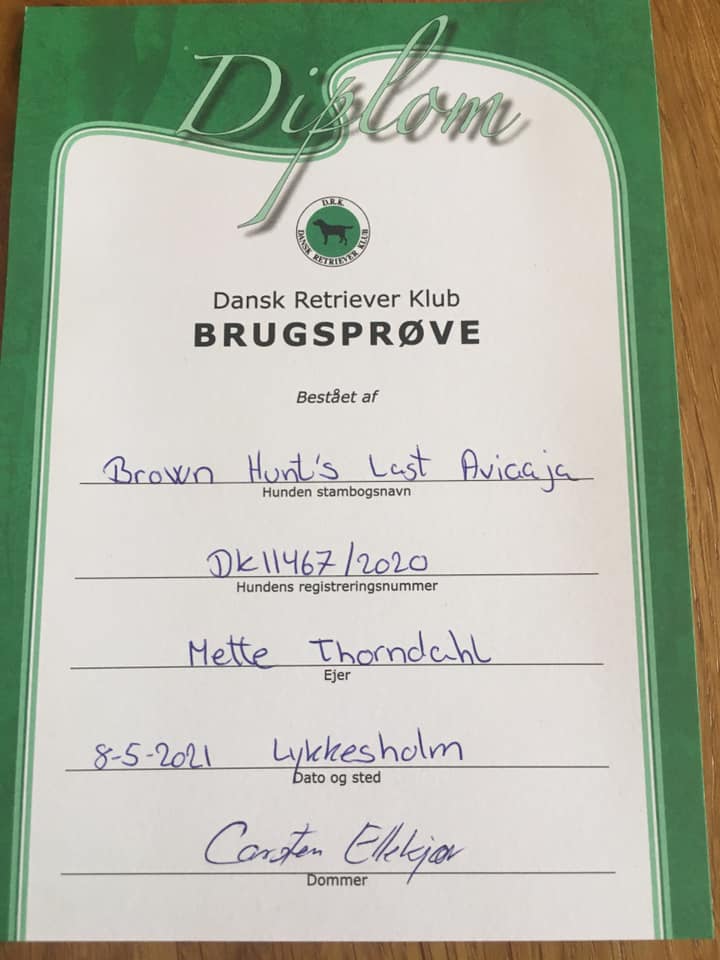 Diplom
D.R.K.
DANSK RETRIEVER KLUB
Dansk Retriever Klub
BRUGSPRØVE
Bestået af
Brown Hunt's Last Aviaaja
Hunden stambogsnavn
DK11467/2020
Hundens registreringsnummer
Mette Thorndahl
Ejer
8-5-2021 Lykkesholm
Dato og sted
Carsten Ellekjær
Dommer